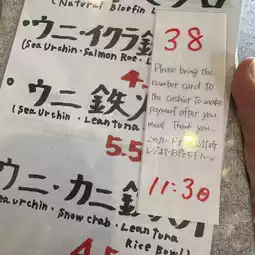 (Natural Bluefin
・ウニ・イクラ鉄
(Sea Urchin・Salmon Roe・L
4.
・ウニ 鉄
(Sea urchin・Lean tuna
5.5
ウニ・カニ鉄
urchin・Snow crab・Lean tuna
Rice Bowl)
4.5
38
Please bring the
number card to
the cashier to make
payment after you
meal. Thank you...
このカードを
レジまでお持ち下さい。
11:30